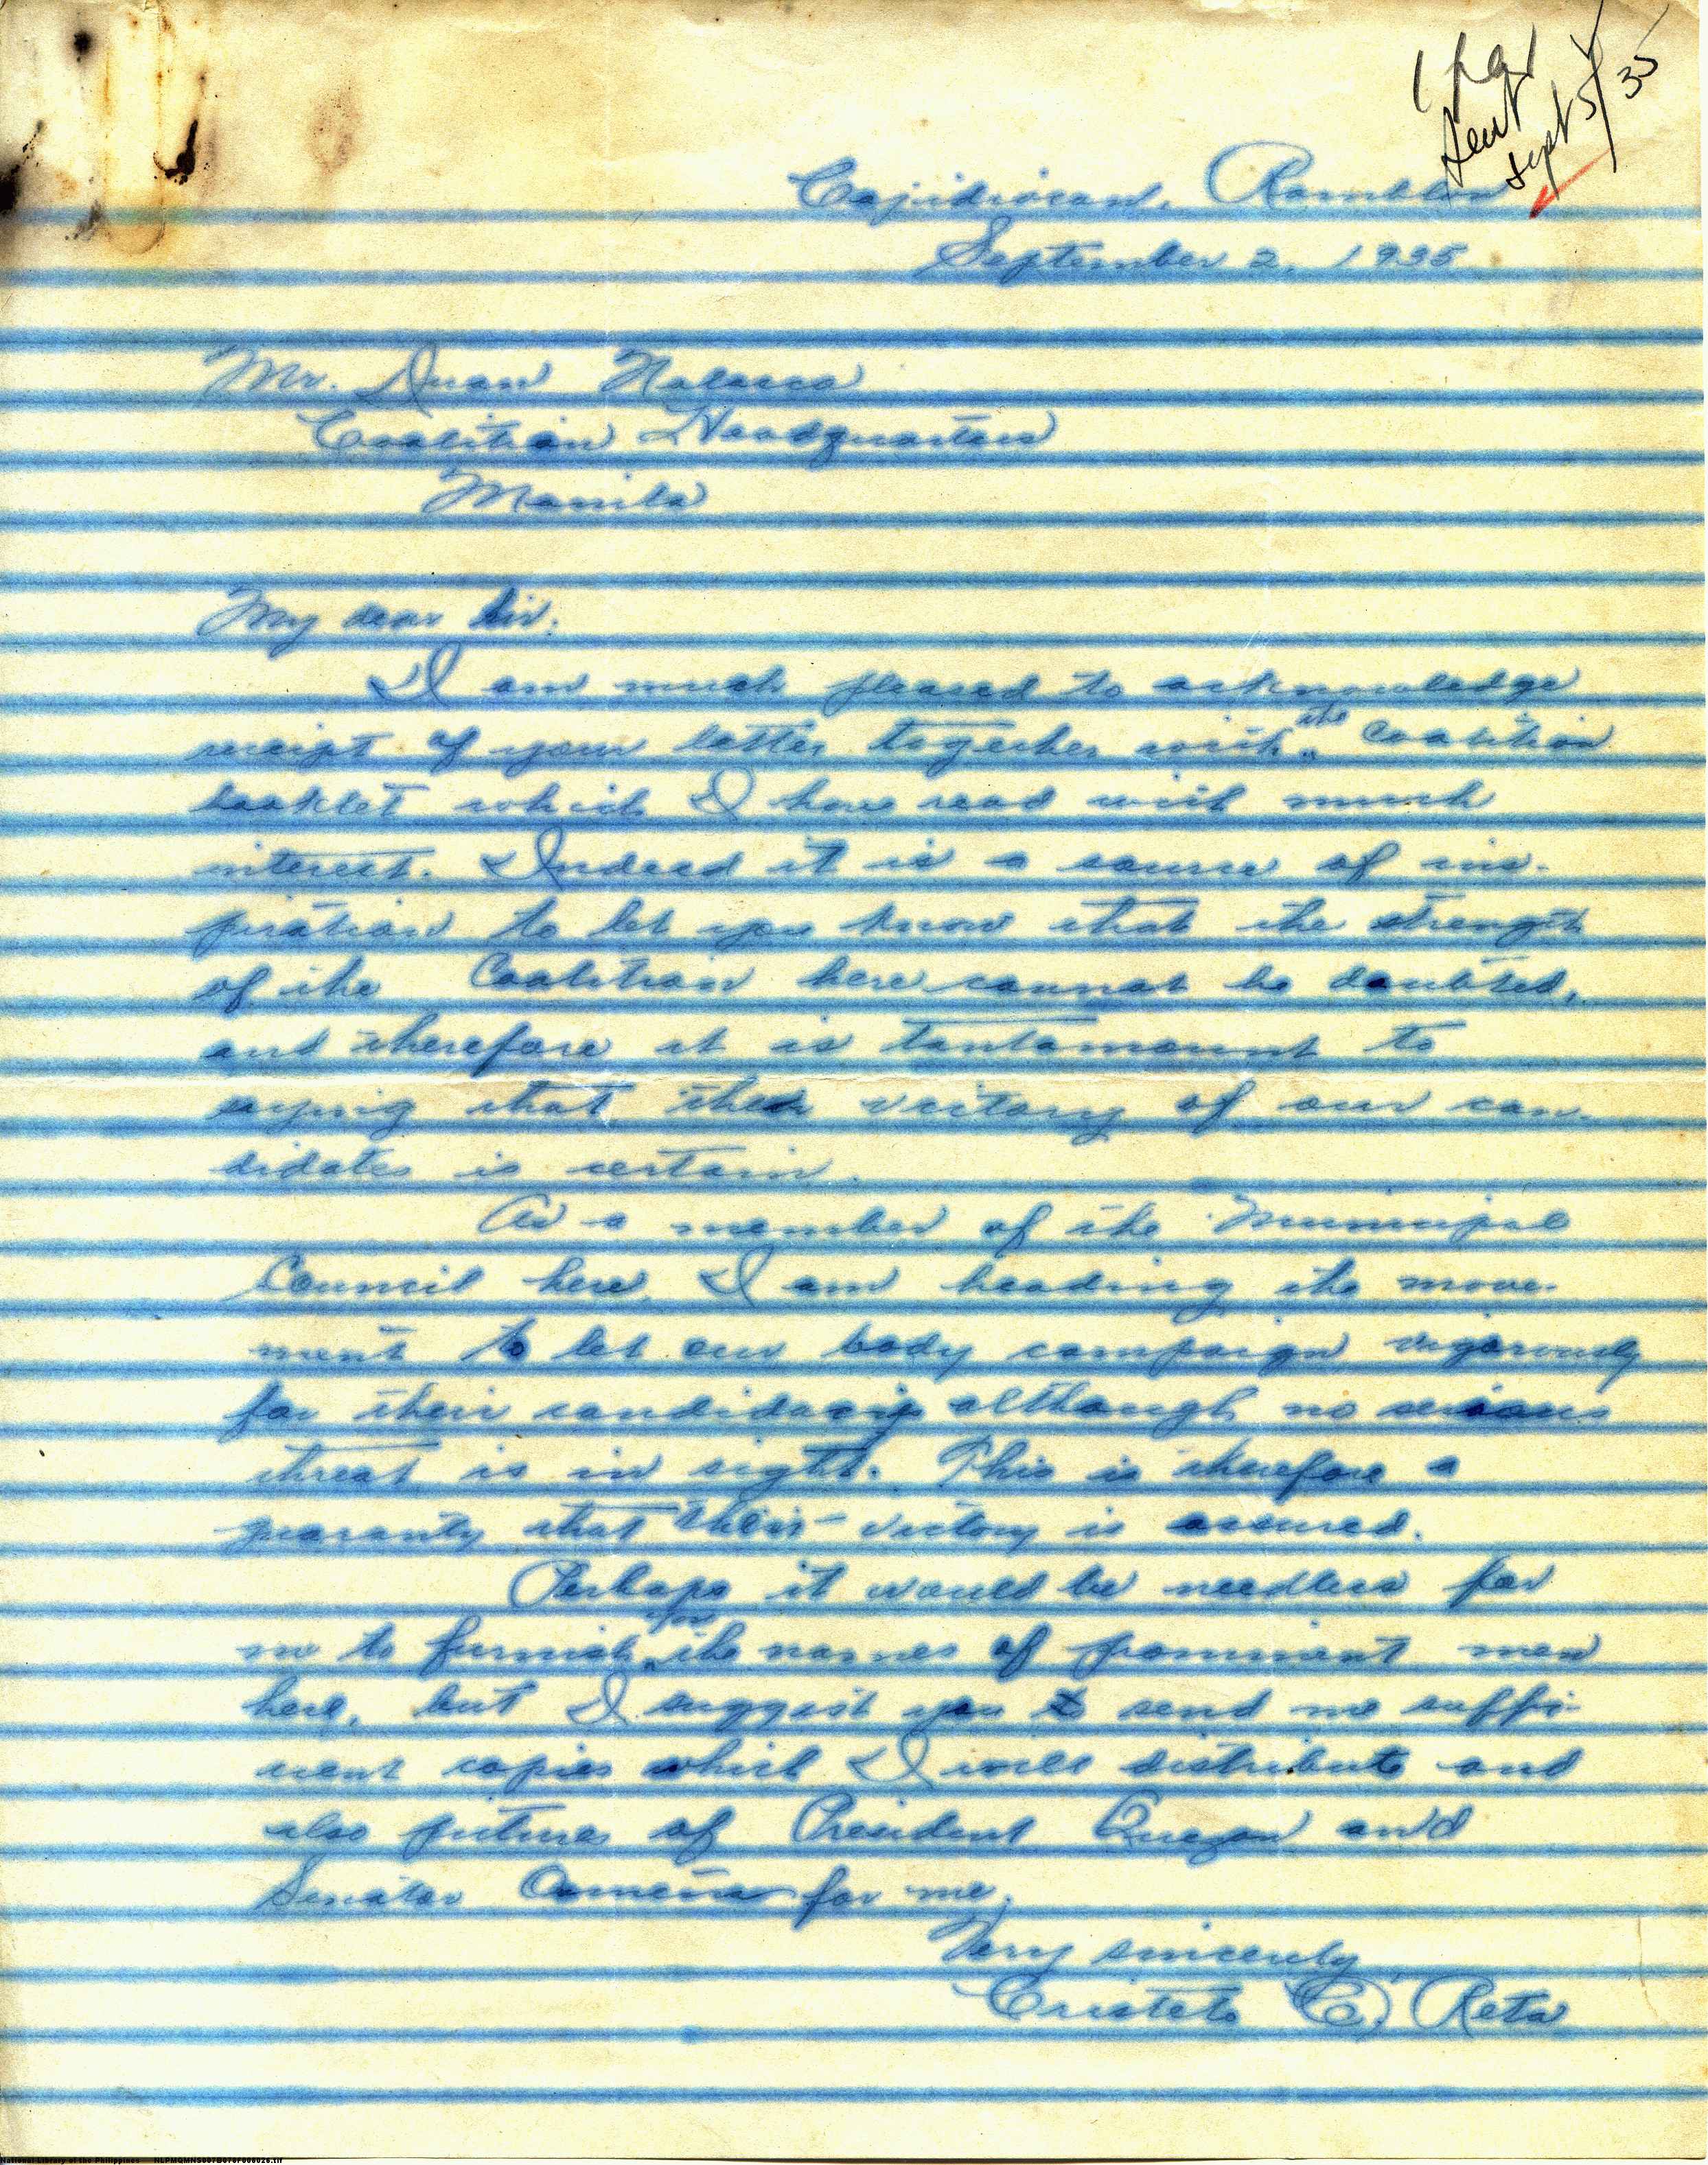 1 pg
Sent
Sept 5/35
Cajidiocan, Romblon
September 2, 1935
Mr. Juan Nolasco
Coalition Headquarters
Manila
My dear Sir:
I am much pleased to acknowledge
receipt of your letter together with the Coalition
booklet which I have read with much
interest. Indeed it is a source of ins-
piration to let you know that the strength
of the Coalition here cannot be doubted,
and therefore it is tantamount to
saying that the victory of our can-
didates is certain.
As a member of the Municipal
Council here, I am heading the move-
ment to let our body campaign vigorously
for their candidacies although no serious
threat is in sight. This is therefore a
guaranty that their victory is assured.
Perhaps it would be needless for
me to furnish you the names of prominent men
here, but I suggest you to send me suffi-
cient copies which I will distribute and
also pictures of President Quezon and
Senator Osmeña for me.
Very sincerely,
Cristeto C. Reta
National Library of the Philippines